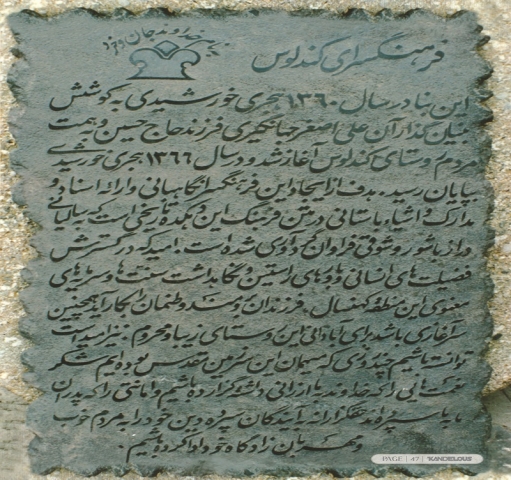 بنام خداوند جان و خرد
فرهنگسرای کندلوس
این بنا در سال ۱۳۶۰ هجری خورشیدی به کوشش
بنیان گذار آن علی اصغر جهانگیری فرزند حاج حسین و به همت
مردم روستای کندلوس آغاز شد و در سال ۱۳۶۶ هجری خورشیدی
بپایان رسید. هدف از ایجاد این فرهنگسرا نگاهبانی و ارائه اسناد و
مدارک و اشیاء باستانی در متن فرهنگ این دهکده تاریخی است که سالیانی
دراز با شور و شوقی فراوان گردآوری شده است. امید که در گسترش
فضیلت های انسانی و خوهای راستین و نگاهداشت سنت ها و سرمایه های
معنوی این منطقه کهنسال، فرزندان را بکار آید همچنین
سرآغازی باشد برای آبادانی این روستای زیبا و محروم. نیز امید است
توانسته باشیم چند روزی که میهمان این سرزمین مقدس بوده ایم شکر
نعمت هایی را که خداوند به ما ارزانی داشته گزارده باشیم و امانتی را که پدران
ما به ما سپرده اند به آیندگان سپرده دین خود را به مردم خوب
و مهربان زادگاه خود ادا کرده باشیم.
PAGE | 47 | KANDELOUS